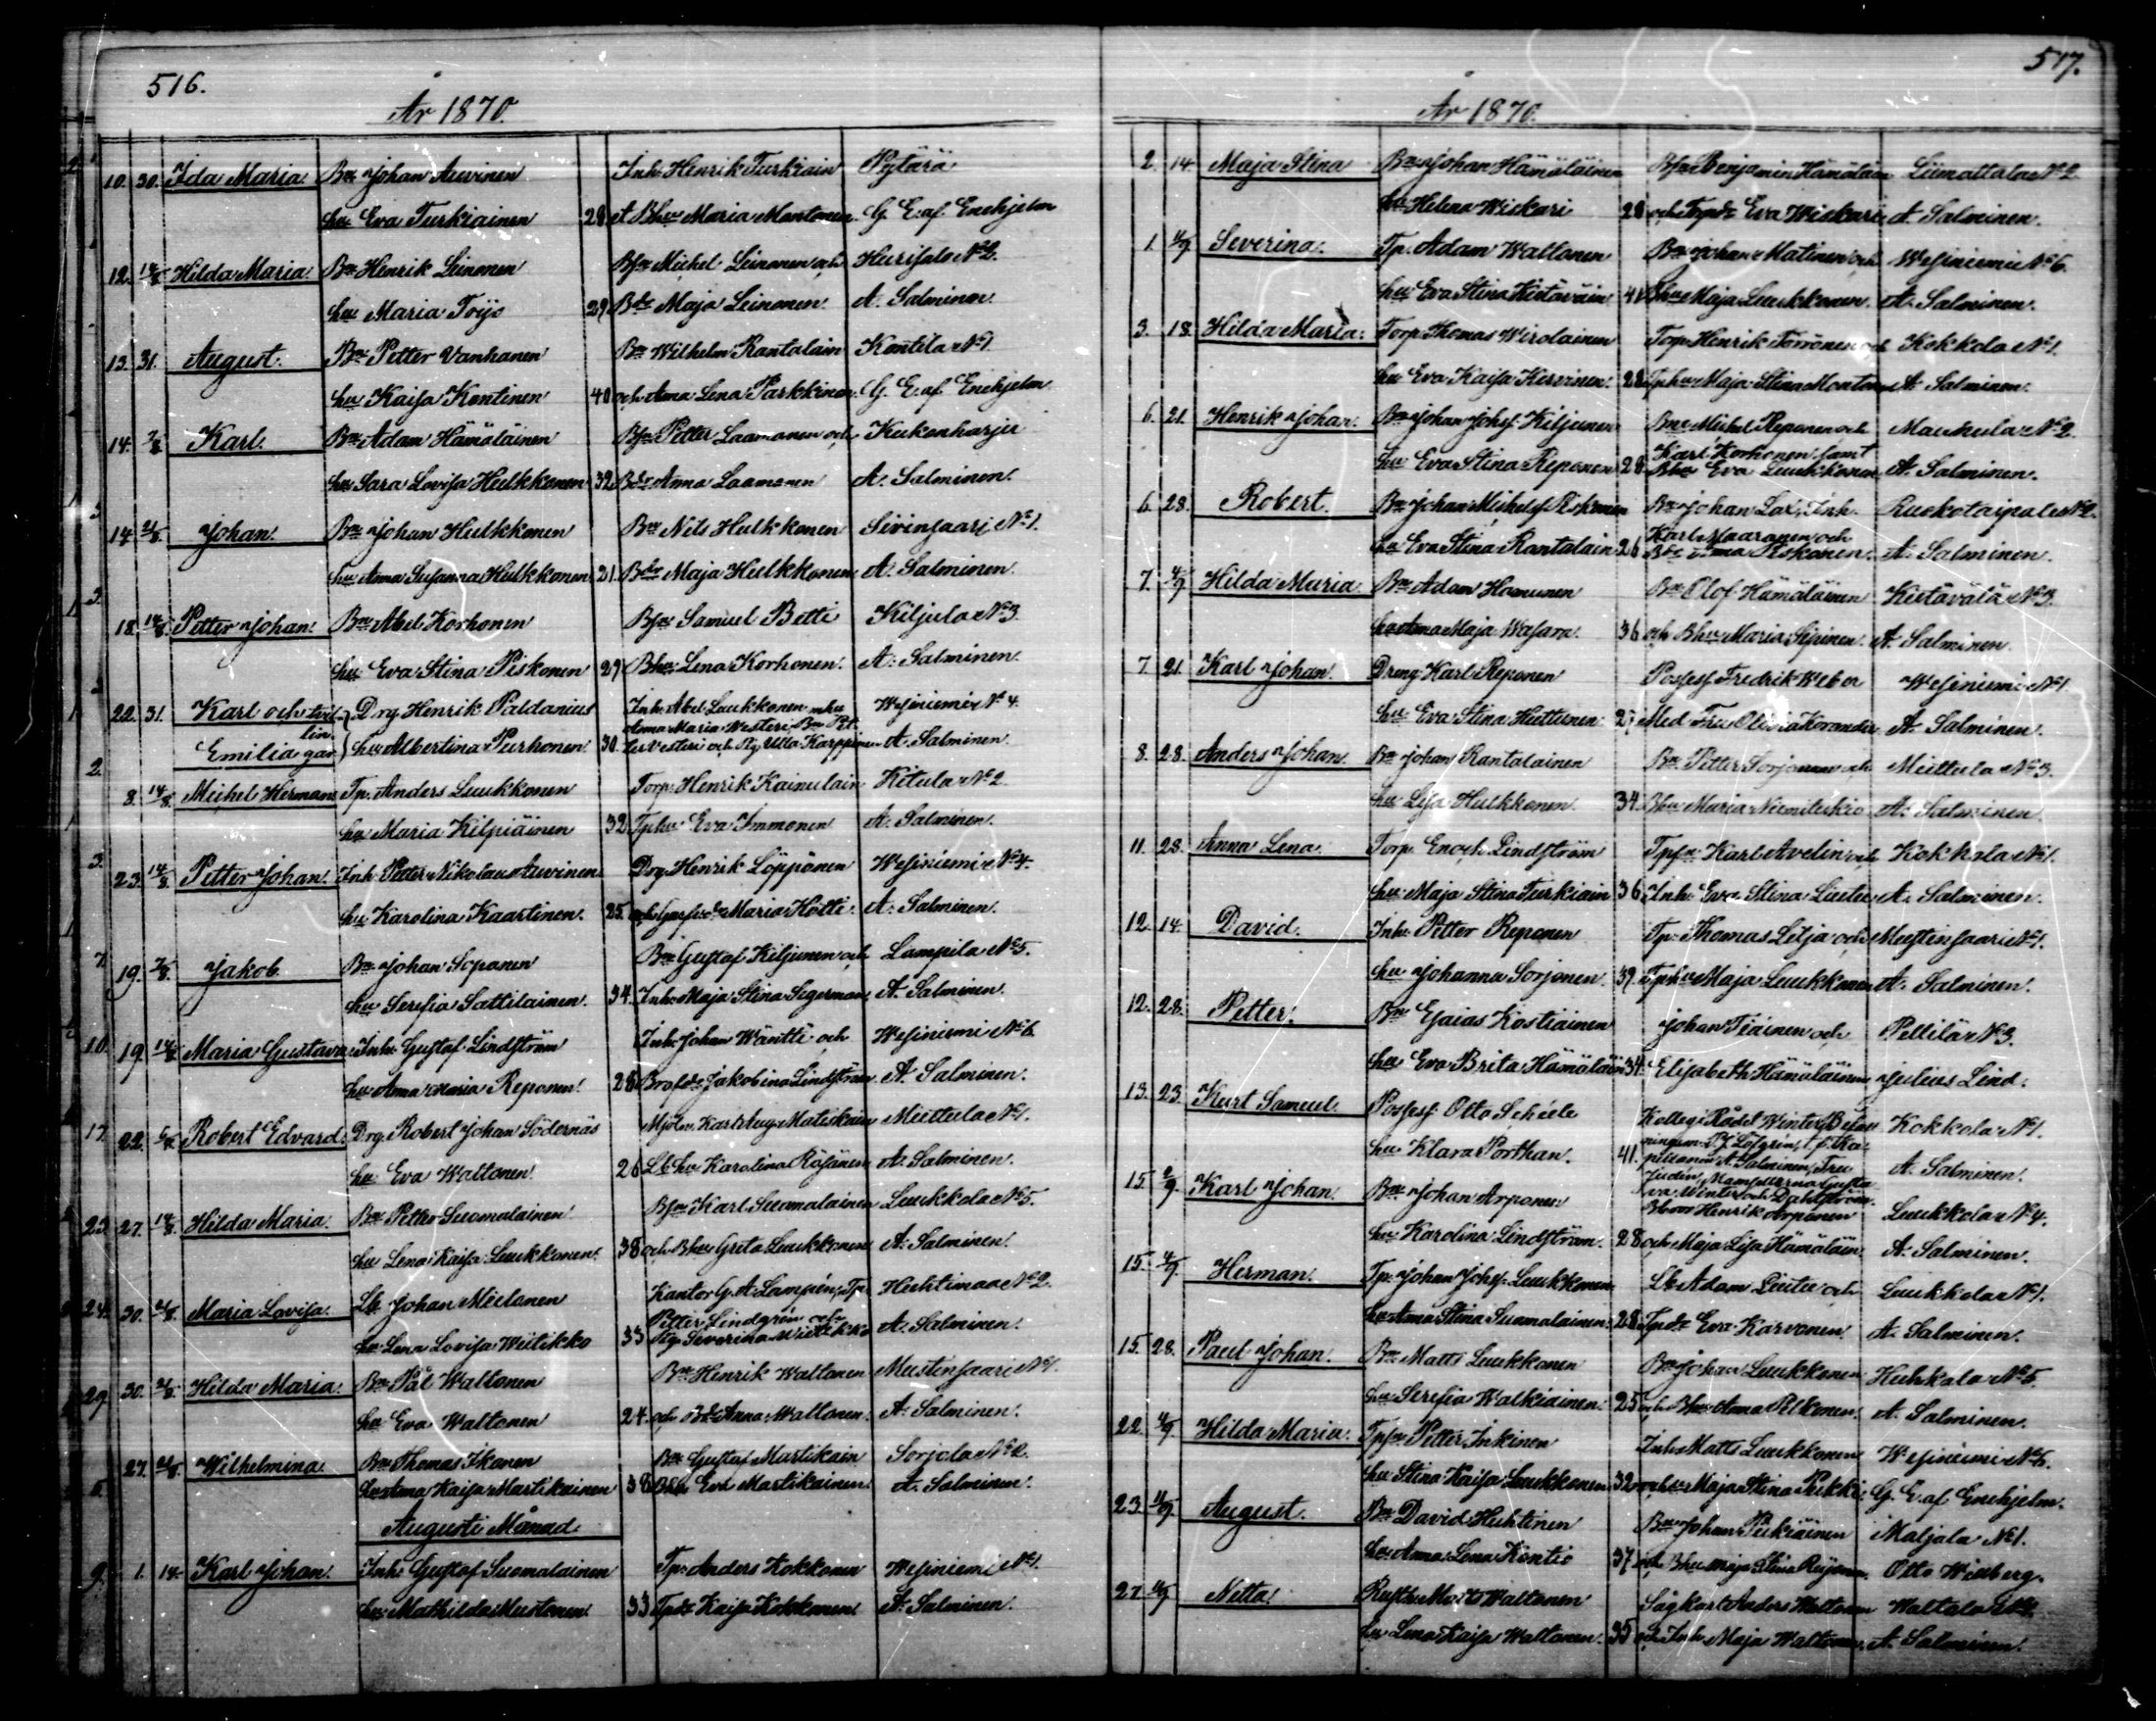 516.
År 1870.
10. 30. Ida Maria. Bn Johan Auvinen Inh. Henrik Turkiain Pytärä
hu Eva Turkiainen 28 et Bhu Maria Montonen G. E. af Enehjelm
12. 14/8 Hilda Maria Bn Henrik Leinonen Bfn Michel Leinonen och Hurisalo No 2.
hu Maria Toijo 29 Bdr Maja Leinonen A. Salminen
13. 31. August. Bn Petter Vanhanen Bn Wilhelm Rantalain Kontila No 1
hu Kaisa Kontinen 40 och Anna Lena Parkkinen G. E. af Enehjelm
14. 7/8 Karl. Bn Adam Hämäläinen Bfn Petter Laamanen och Kukonharju
hu Sara Lovisa Hulkkonen 32 Bdr Anna Laamanen A. Salminen.
14 21/8 Johan. Bn Johan Hulkkonen Bn Nils Hulkkonen Sivinsaari No 1.
hu Anna Susanna Hulkkonen 21. Bdr Maja Hulkkonen A. Salminen.
18. 14/8 Petter Johan. Bn Abel Korhonen Bfn Samuel Betti Kiljula No 3
hu Eva Stina Piskonen 29 Bhu Lena Korhonen. A. Salminen.
22. 31. Karl och tvil- Drg Henrik Paldanius Inh. Abel Luukkonen mhu Wesiniemi No 4.
lin- Anna Maria Westeri, Bn Pet-
Emilia gar hu Albertina Purhonen 30. ter Vesteri och Pig Ulla Karppinen A. Salminen
8. 14/8 Michel Herman Tp. Anders Luukkonen Torp. Henrik Kainulain Kitula No 2
hu Maria Kilpiäinen 32 Tphu Eva Immonen A. Salminen.
23. 14/8 Petter Johan. Inh. Petter Nikolaus Auvinen Drg Henrik Löppönen Wesiniemi No 4.
hu Karolina Kaartinen. 25. och Maria Hotti. A. Salminen.
19. 7/8. Jakob Bn Johan Soponen Bn Gustaf Kiljunen och Lampila No 5.
hu Serefia Sattilainen. 34. Inh. Maja Stina Segerman A. Salminen.
19 14/8 Maria Gustava Inh. Gustaf Lindström Inh. Johan Wäntti och Wesiniemi No 6
hu Anna Maria Reponen. 28 Jakobina Lindström A. Salminen.
22. Robert Edvard Drg. Robert Johan Södernäs Mjöln. Karl Aug. Matiskain Miettula No 1.
hu Eva Waltonen 26 Lb hu Karolina Räsänen A. Salminen.
27. 14/8. Hilda Maria. Bn Petter Suomalainen Bfn Karl Suomalainen Luukkola No 5.
hu Lena Kaisa Luukkonen. 38 och Bhu Greta Luukkonen A. Salminen.
30. 21/8. Maria Lovisa. Lb Johan Mielonen Kantor G. A. Lampén, Tp. Huhtimaa No 2.
Petter Lindgrén och
hu Lena Lovisa Wiitikko 33 Pig Severina Wiitikko A. Salminen.
30. 21/8. Hilda Maria. Bn Pål Waltonen Bn Henrik Waltonen Mustinsaari No 1.
hu Eva Waltonen 24. och Bdr Anna Waltonen. A. Salminen.
27. 21/8. Wilhelmina Bn Thomas Ikonen Bn Gustaf Martikain Sorjola No 2.
hu Anna Kaisa Martikainen 38 Eva Martikainen. A. Salminen.
Augusti Månad
1. 14. Karl Johan. Inh. Gustaf Suomalainen Tp. Anders Kokkonen Wesiniemi No 1.
hu Mathilda Mustonen 33 Tpdr Kaisa Kokkonen A. Salminen.
517.
År 1870.
2. 14. Maja Stina Bn Johan Hämäläinen Bfn Benjamin Hämäläin Liimattala No 2
hu Helena Wiskari 28 och Torpdr Eva Wiskari A. Salminen.
1. 4/9 Severina. Tp. Adam Waltonen Bn Johan Matinen och Wesiniemi No 6.
hu Eva Stina Kietäväin 41 Bhu Maja Luukkonen. A. Salminen.
3. 18. Hilda Maria. Torp. Thomas Wirolainen Torp. Henrik Törrönen och Kokkola No 1.
hu Eva Kaisa Hirvinen. 28 Tphu Maja Stina Monton A. Salminen.
6. 21. Henrik Johan. Bn Johan Johsf. Kiljunen Bn Michel Reponen och Maukula No 2.
Karl Korhonen samt
hu Eva Stina Reponen 28 Bhu Eva Luukkonen A. Salminen.
6. 28. Robert. Bn Johan Michelsf Piskonen Bn Johan Lax, Inh. Ruokotaipale No 2.
Karl Maaranen och
hu Eva Stina Rantalain 26 Bdr Anna Piskonen. A. Salminen.
7. 4/9 Hilda Maria Bn Adam Homunen Bn Olof Hämäläinen Kietävälä No 3.
hu Anna Maja Wasara. 36 och Bhu Maria Sipinen. A. Salminen.
7. 21. Karl Johan. Dreng Karl Reponen Possess. Fredrik Weber Wesiniemi No 1
hu Eva Stina Huttunen 27 Med Fru Olivia Korander A. Salminen.
8. 28. Anders Johan. Bn Johan Rantalainen Bn Petter Sorjonen och Miettula No 3.
hu Lisa Hulkkonen. 34 Bhu Maria A. Salminen.
11. 28. Anna Lena. Torp. Enoch Lindström Tpfn Karl Avelin och Kokkola No 1.
hu Maja Stina Turkiain 36 Inh. Eva Stina Liutu A. Salminen.
12. 14. David. Inh. Petter Reponen Tp. Thomas Lilja och Mustinsaari No 1.
hu Johanna Sorjonen. 39. Tphu Maja Luukkonen A. Salminen.
12. 28. Petter. Bn Esaias Kostiainen Johan Tiainen och Pellilä No 3.
hu Eva Brita Hämäläin 34. Elisabeth Hämäläinen Julius Lind.
13. 23. Kurt Samuel. Possess. Otto Schéele Kollegii Rådet Winter, Kokkola No 1.
hu Klara Porthan. 41. A. Salminen, Fru A. Salminen.
Judin, Mamsellerna Gusta-
va Winter och Dahlström.
15. 4/9. Karl Johan. Bn Johan Arponen Henrik Arponen Luukkola No 4.
hu Karolina Lindström. 28 och Maja Lisa Hämäläin A. Salminen.
15. 4/9. Herman. Tp. Johan Johsf. Luukkonen Lb Adam Liutu och Luukkola No 1.
hu Anna Stina Suomalainen. 28 Tpdr Eva Karvonen A. Salminen.
15. 28. Paul Johan. Bn Matts Luukkonen Bn Johan Luukkonen Huhkala No 5.
hu Serefia Walkiainen. 25 och Bhu Anna Pelkonen. A. Salminen.
22. 4/9 Hilda Maria. Tpfn Petter Inkinen Inh. Matts Luukkonen Wesiniemi No 6.
hu Stina Kaisa Luukkonen 32 och hu Maja Stina Pukki G. E. af Enehjelm.
23. 11/9. August. Bn David Huhtinen Bn Johan Matjala No 1.
hu Anna Lena Kontio 37 och Bhu Maja Stina Otto Widberg.
27. 4/9 Netta. Matts Waltonen Sågkarl Anders Waltonen Waltola
hu Lena Kaisa Waltonen. 35 och Inh. Maja Waltonen. A. Salminen.